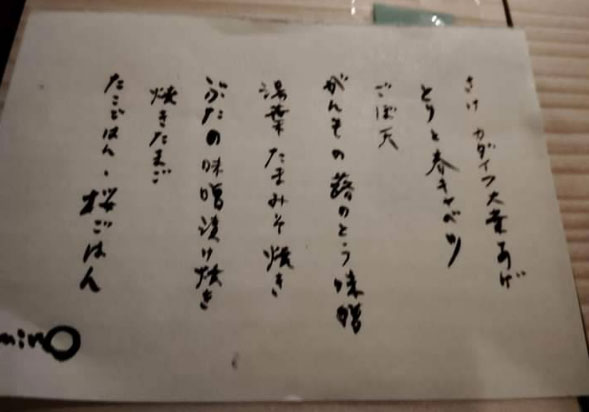 さけ カダイフ大葉あげ
とりと春キャベツ
ごぼ天
がんもの蕗のとう味噌
湯葉たまみそ焼き
ぶたの味噌漬け焼き
焼きたまご
たこごはん・桜ごはん